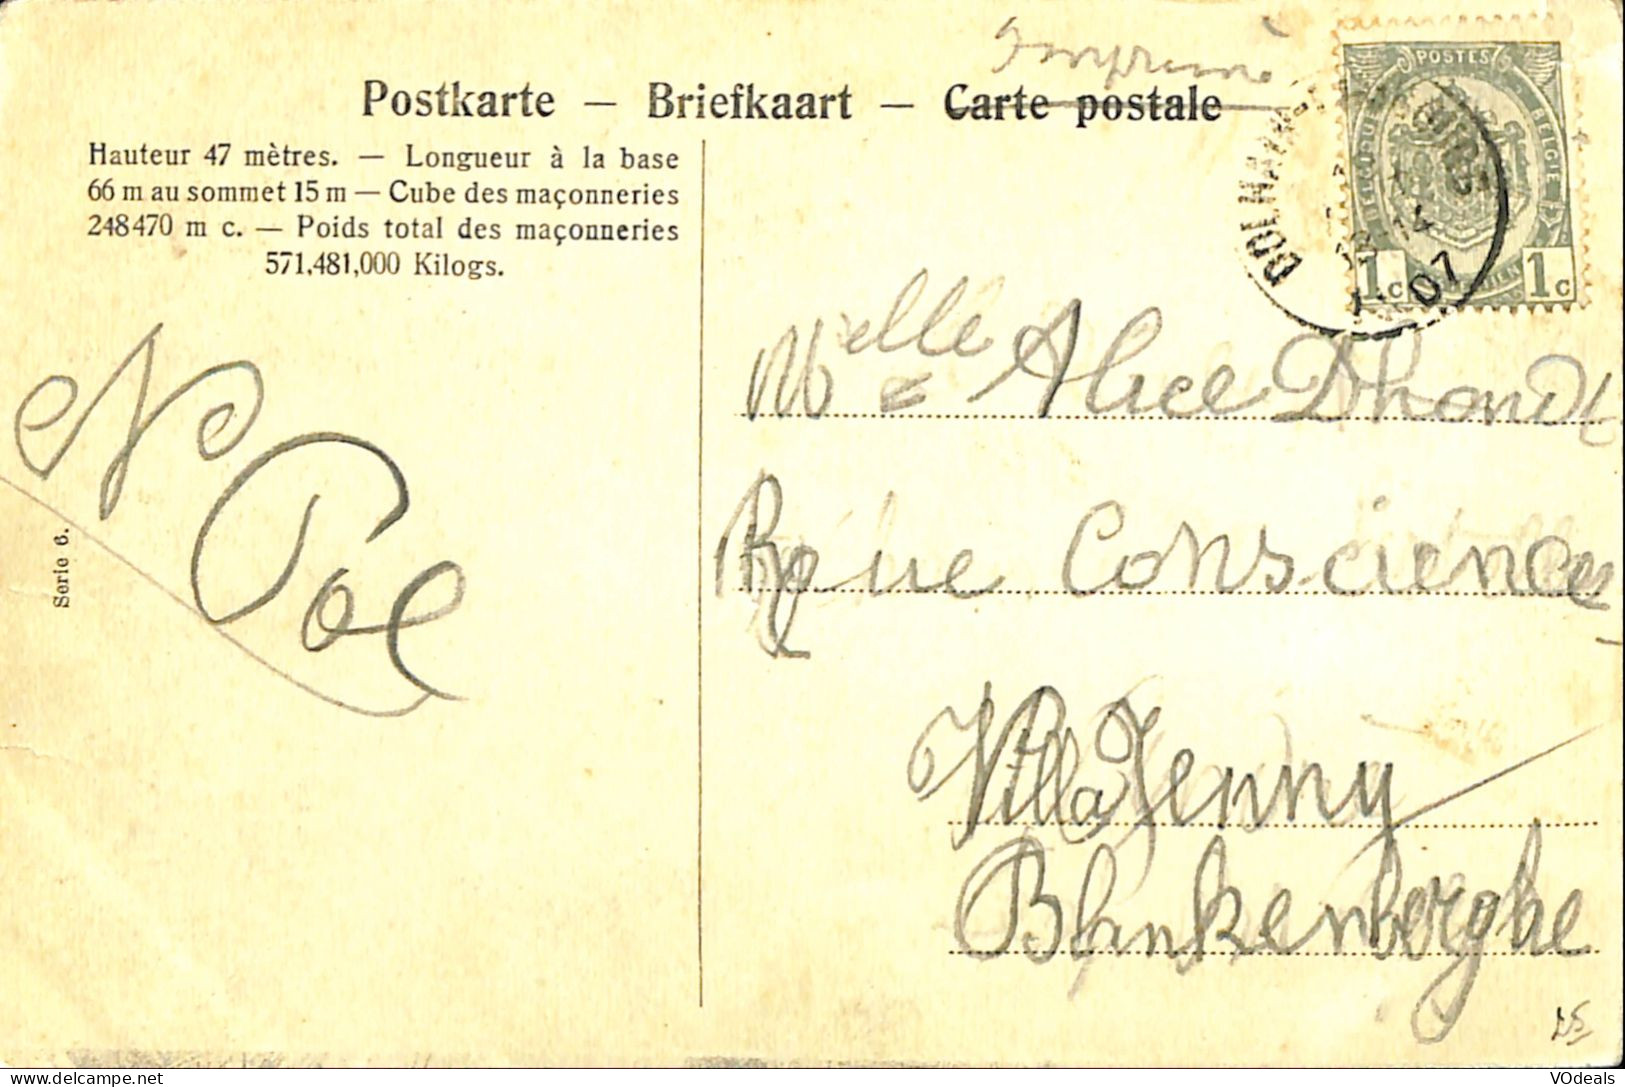 Imprimé
Postkarte — Briefkaart — Carte postale
POSTES
BELGIQUE
BELGIE
1c
1c
DOLHAIN
07
Hauteur 47 mètres. — Longueur à la base
66 m au sommet 15 m — Cube des maçonneries
248470 m c. — Poids total des maçonneries
571,481,000 Kilogs.
Serie 6.
Melle Alice Dhondt
Conscience
Villa Jenny
Blankenberghe
VOdeals